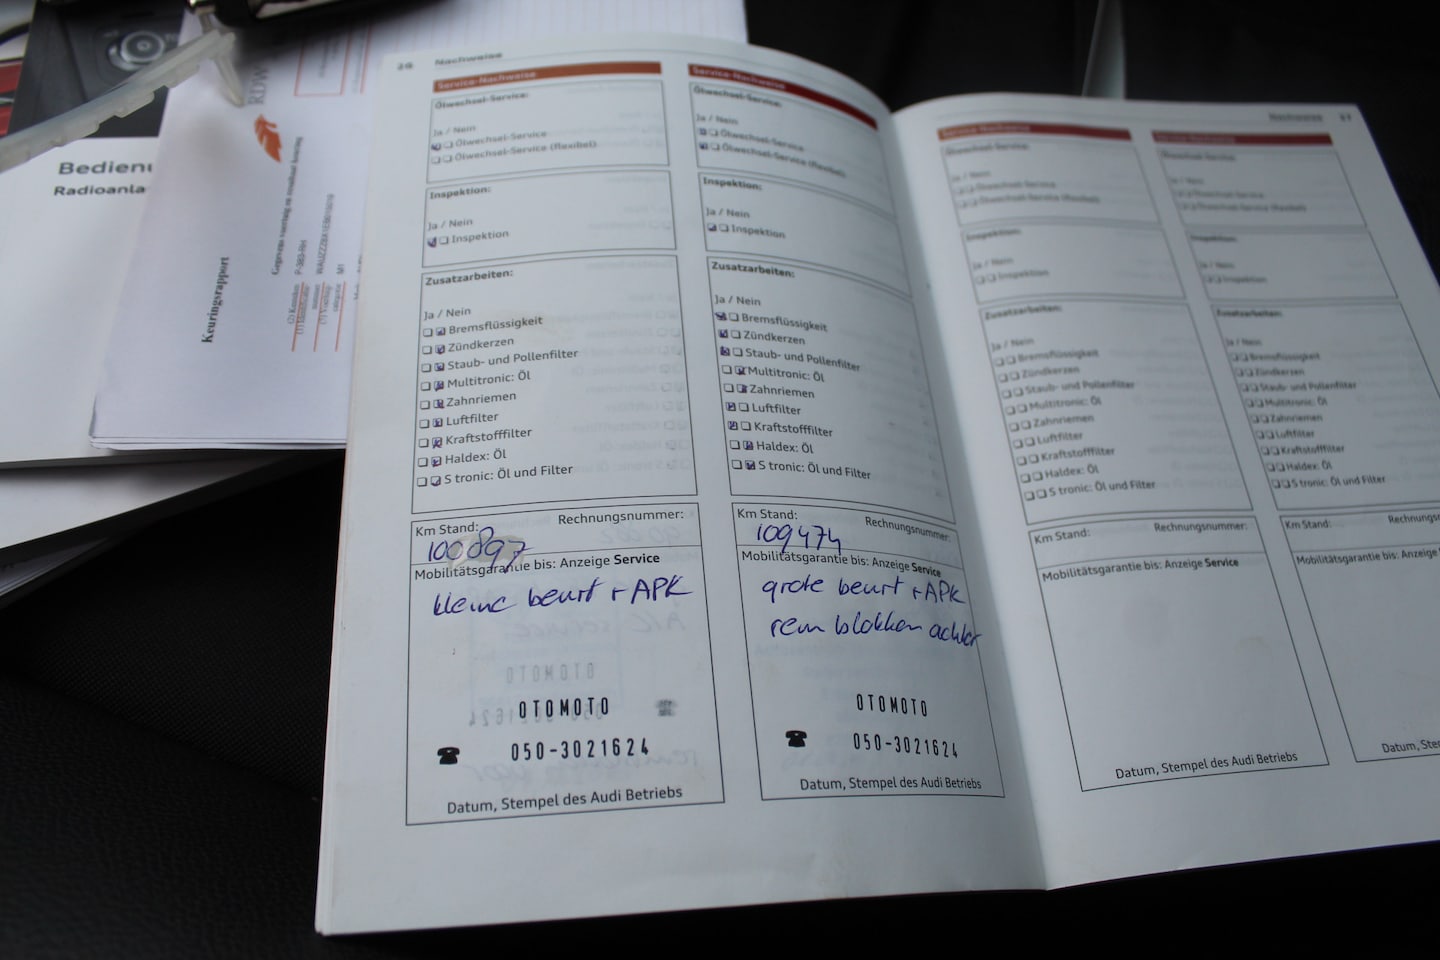 Bedienu
Radioanla
RDW
Keuringsrapport
26 Nachweise
Service-Nachweise
Ölwechsel-Service:
Ja / Nein
Ölwechsel-Service
Ölwechsel-Service (flexibel)
Inspektion:
Ja / Nein
Inspektion
Zusatzarbeiten:
Ja / Nein
Bremsflüssigkeit
Zündkerzen
Staub- und Pollenfilter
Multitronic: Öl
Zahnriemen
Luftfilter
Kraftstofffilter
Haldex: Öl
S tronic: Öl und Filter
Km Stand: Rechnungsnummer:
100897
Mobilitätsgarantie bis: Anzeige Service
kleine beurt + APK
OTOMOTO
OTOMOTO
050-3021624
Datum, Stempel des Audi Betriebs
Service-Nachweise
Ölwechsel-Service:
Ja / Nein
Ölwechsel-Service
Ölwechsel-Service (flexibel)
Inspektion:
Ja / Nein
Inspektion
Zusatzarbeiten:
Ja / Nein
Bremsflüssigkeit
Zündkerzen
Staub- und Pollenfilter
Multitronic: Öl
Zahnriemen
Luftfilter
Kraftstofffilter
Haldex: Öl
S tronic: Öl und Filter
Km Stand: Rechnungsnummer:
109474
Mobilitätsgarantie bis: Anzeige Service
grote beurt + APK
rem blokken achter
OTOMOTO
050-3021624
Datum, Stempel des Audi Betriebs
Nachweise 27
Service-Nachweise
Ölwechsel-Service:
Ja / Nein
Ölwechsel-Service
Ölwechsel-Service (flexibel)
Inspektion:
Ja / Nein
Inspektion
Zusatzarbeiten:
Ja / Nein
Bremsflüssigkeit
Zündkerzen
Staub- und Pollenfilter
Multitronic: Öl
Zahnriemen
Luftfilter
Kraftstofffilter
Haldex: Öl
S tronic: Öl und Filter
Km Stand: Rechnungsnummer:
Mobilitätsgarantie bis: Anzeige Service
Datum, Stempel des Audi Betriebs
Service-Nachweise
Ölwechsel-Service:
Ja / Nein
Ölwechsel-Service
Ölwechsel-Service (flexibel)
Inspektion:
Ja / Nein
Inspektion
Zusatzarbeiten:
Ja / Nein
Bremsflüssigkeit
Zündkerzen
Staub- und Pollenfilter
Multitronic: Öl
Zahnriemen
Luftfilter
Kraftstofffilter
Haldex: Öl
S tronic: Öl und Filter
Km Stand: Rechnungs
Mobilitätsgarantie bis: Anzeige
Datum, Ste